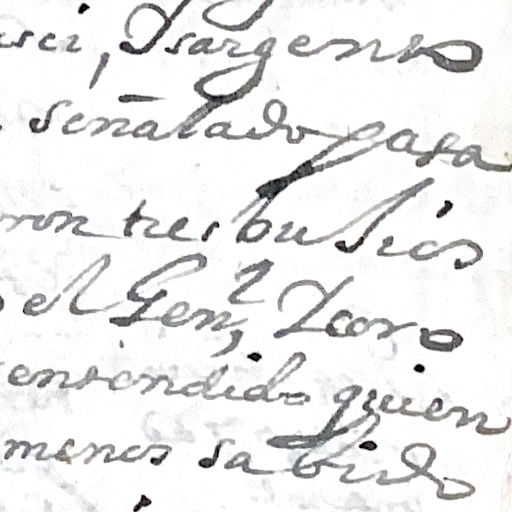 sci, Ysargento
señalado para
ron tres bu
el Gen.l
entendido quien
menos sabido